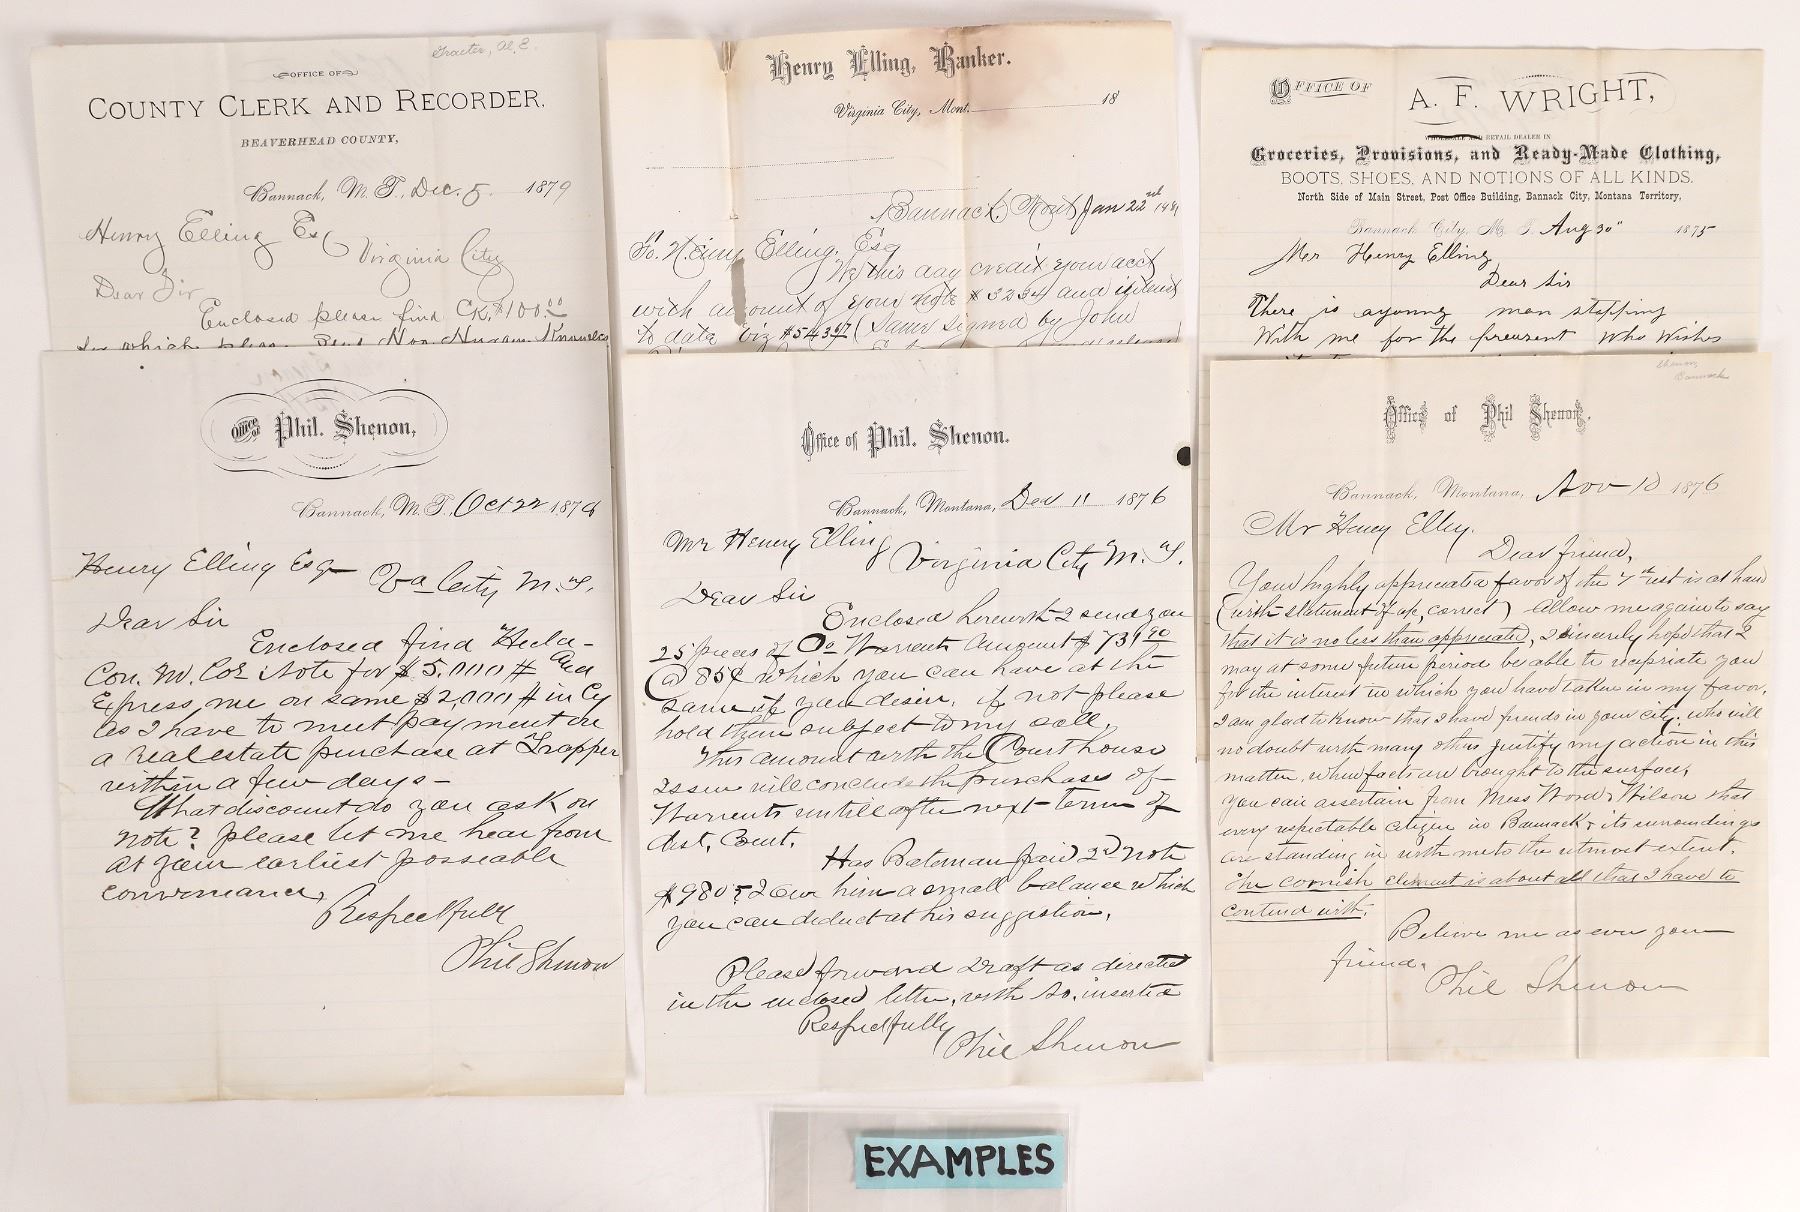 Tracter, Al. E.
OFFICE OF
COUNTY CLERK AND RECORDER,
BEAVERHEAD COUNTY,
Bannack, M. T., Dec. 5. 1879
Henry Elling Esq
Virginia City
Dear Sir
Enclosed please find CK. $100.00
for which please send Hon.
Henry Elling, Banker.
Virginia City, Mont. 18
Bannack, Mont Jan 22nd
To. Henry Elling. Esq
We this day credit your acct
with amount of your note $3234 and interest
to date viz (Same signed by John
OFFICE OF
A. F. WRIGHT,
WHOLESALE AND RETAIL DEALER IN
Groceries, Provisions, and Ready-Made Clothing,
BOOTS, SHOES, AND NOTIONS OF ALL KINDS.
North Side of Main Street, Post Office Building, Bannack City, Montana Territory,
Bannack City, M. T. Aug 30" 1875
Mr Henry Elling
Dear Sir
There is a young man stopping
With me for the preusent Who Wishes
Office of Phil. Shenon,
Bannack, M. T., Oct 22 1878
Henry Elling Esq
Va City M. T.
Dear Sir
Enclosed find Hecla
Con. M. Co's Note for $5,000 # And
Express me on same $2,000 # in Cy
as I have to meet payment on
a real estate purchase at Trapper
within a few days -
What discount do you ask on
note? please let me hear from
at your earliest posseable
convenance,
Respectfully
Phil Shenon
Office of Phil. Shenon.
Bannack, Montana, Dec 11 1876
Mr Henry Elling
Virginia City M. T.
Dear Sir
Enclosed herewith I send you
25 pieces of Co Warrents Amount $731 90
@ 85¢ which you can have at the
same if you desire, if not please
hold them subject to my call,
This amount with the Court house
Issue will conclude the purchase of
Warrents untill after next term of
dist, Court.
Has Bateman paid 2d note
$980? I owe him a small balance which
you can deduct at his suggestion,
Please forward Draft as directed
in the enclosed letter, with No. inserted
Respectfully
Phil Shenon
Shenon,
Bannack
Office of Phil Shenon.
Bannack, Montana, Nov 10 1876
Mr Henry Elling.
Dear friend,
Your highly appreciated favor of the 7th inst is at hand
(with statement of a/c, correct) Allow me again to say
that it is no less than appreciated, I sincerely hope that I
may at some future period be able to recipriate you
for the interest in which you have taken in my favor,
I am glad to know that I have friends in your city, who will
no doubt with many others justify my action in this
matter, when facts are brought to the surface,
you can assertain from Mess Word & Wilson that
every respectable citizen in Bannack & its surroundings
are standing in with me to the utmost extent.
The cornish element is about all that I have to
contend with.
Believe me as ever your
friend,
Phil Shenon
EXAMPLES